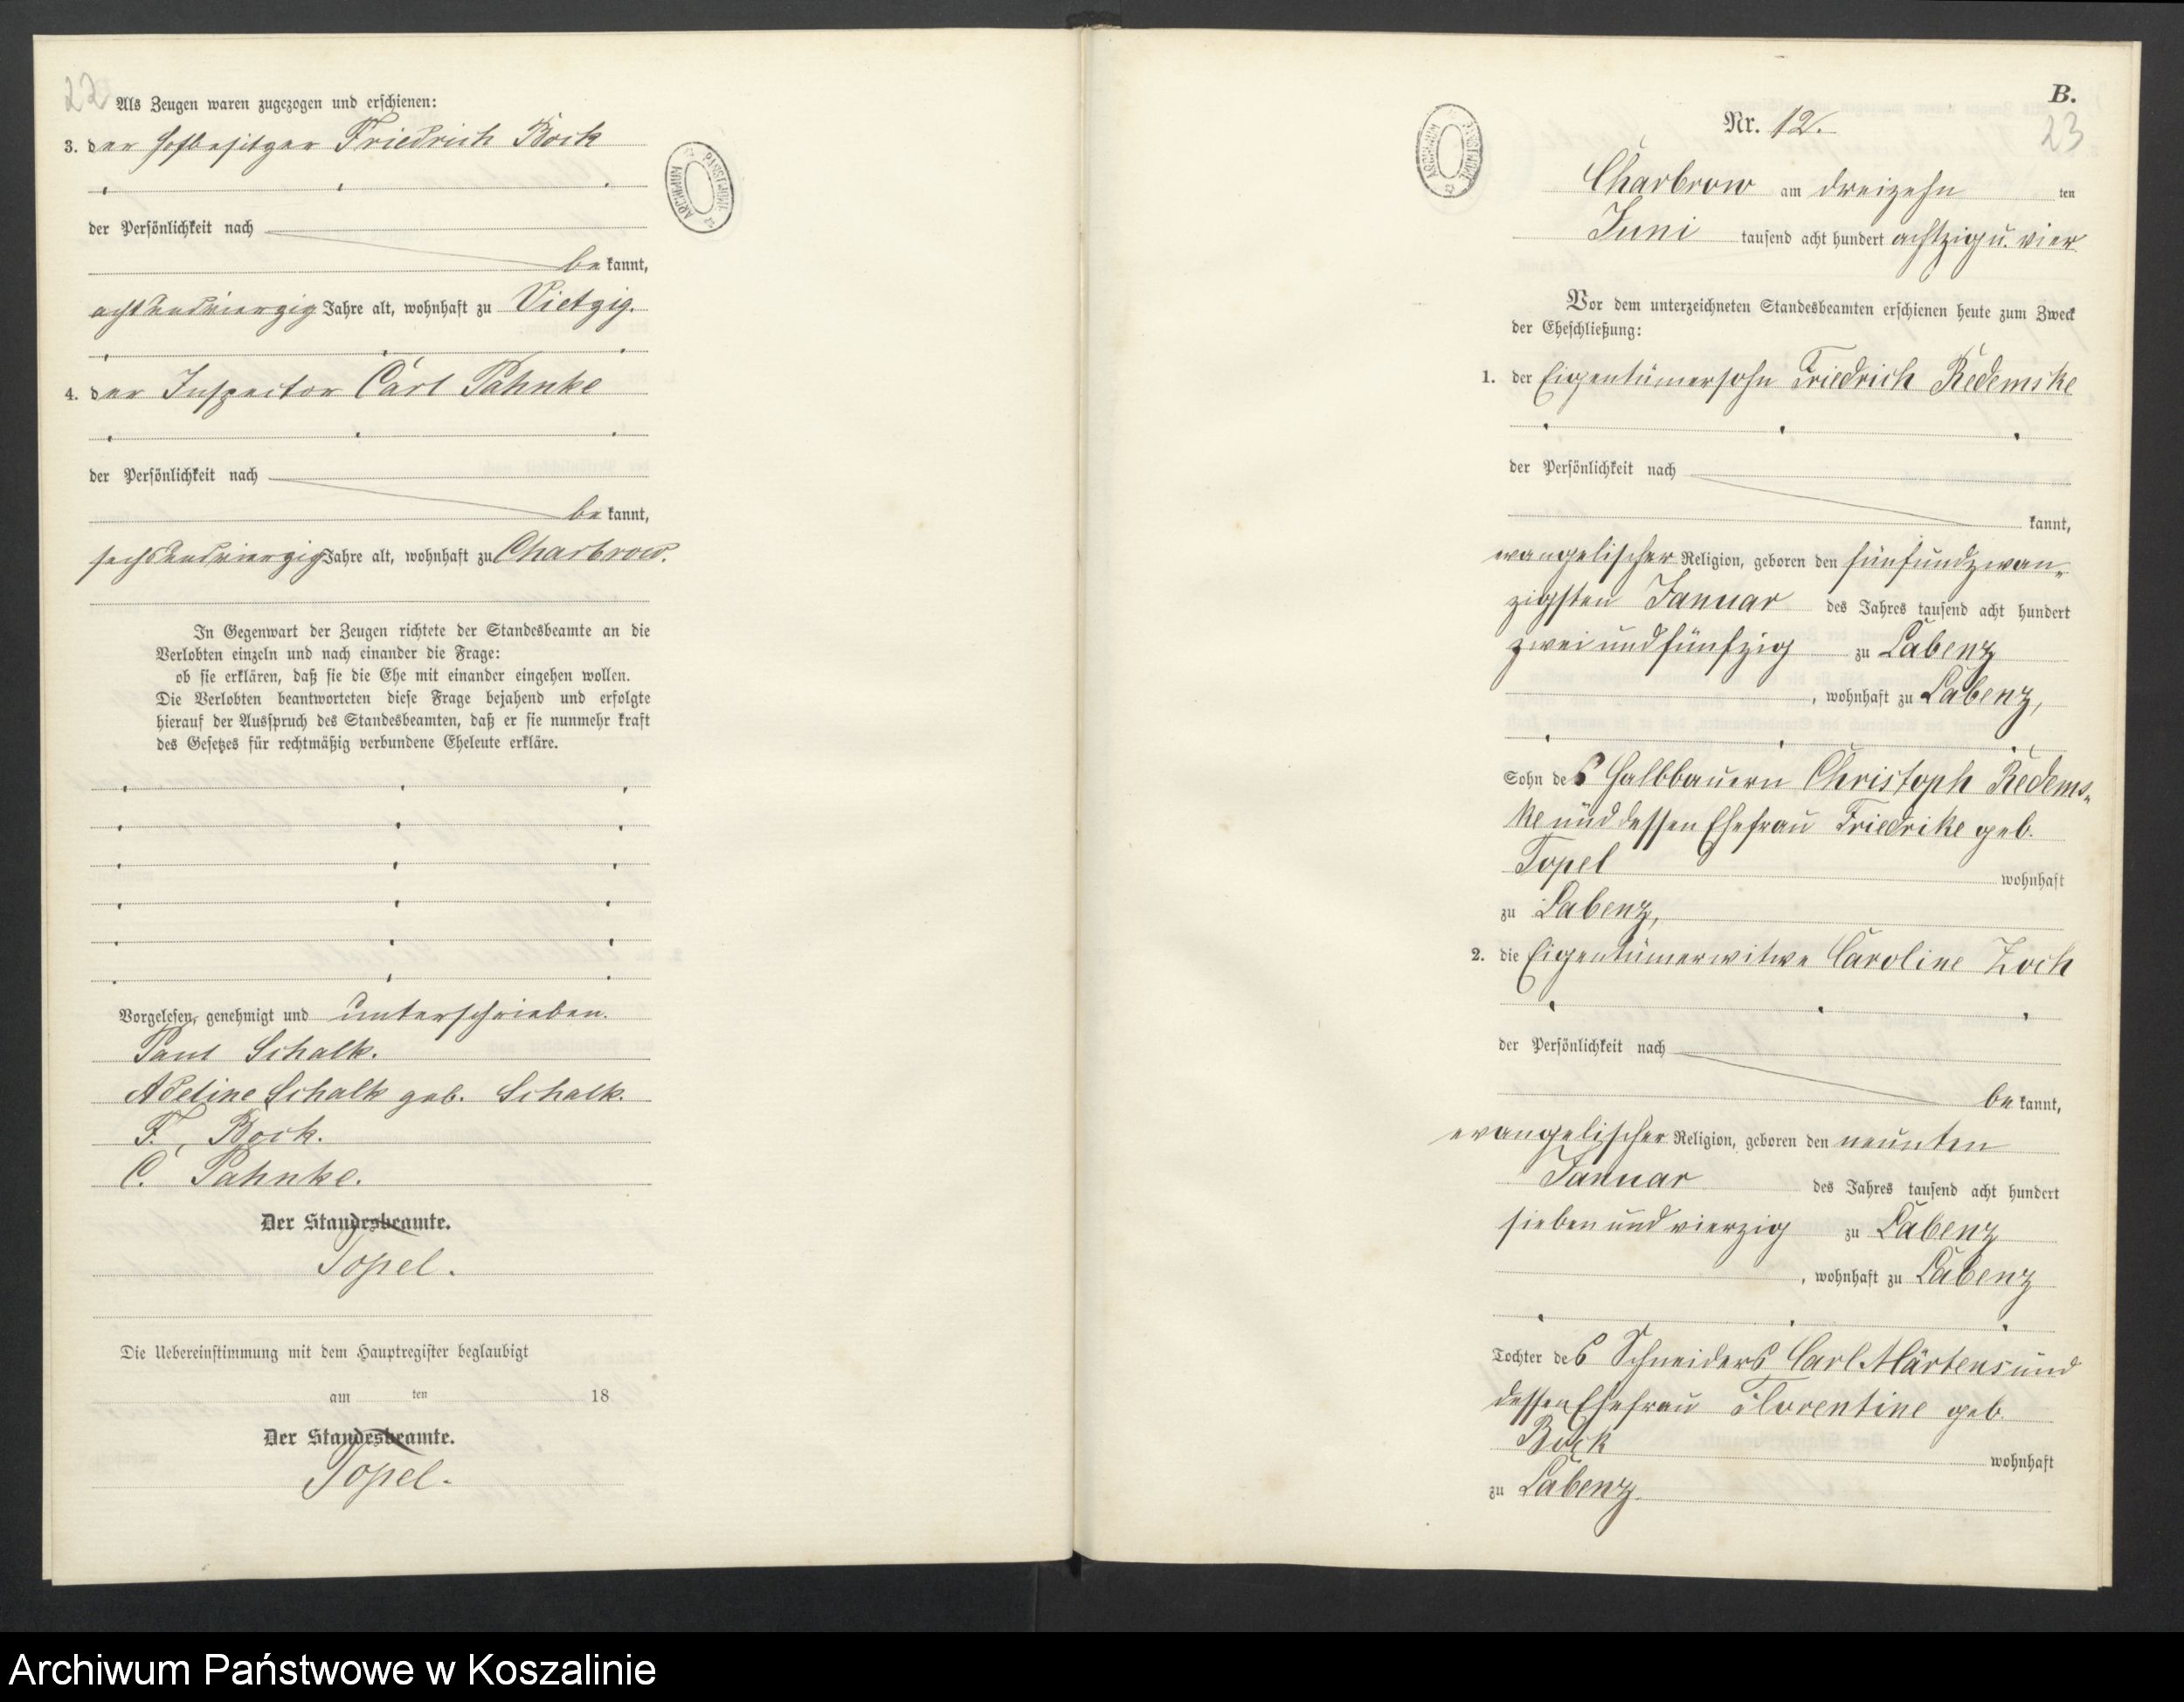 22
Als Zeugen waren zugezogen und erschienen:
3. der Hofbesitzer Friedrich Bock
der Persönlichkeit nach
be kannt,
achtundvierzig Jahre alt, wohnhaft zu Vietzig.
4. der Inspector Carl Pahnke
der Persönlichkeit nach
be kannt,
sechsundvierzig Jahre alt, wohnhaft zu Charbrow.
In Gegenwart der Zeugen richtete der Standesbeamte an die
Verlobten einzeln und nach einander die Frage:
ob sie erklären, daß sie die Ehe mit einander eingehen wollen.
Die Verlobten beantworteten diese Frage bejahend und erfolgte
hierauf der Ausspruch des Standesbeamten, daß er sie nunmehr kraft
des Gesetzes für rechtmäßig verbundene Eheleute erkläre.
Vorgelesen, genehmigt und unterschrieben.
Paul Schalk.
Adeline Schalk geb. Schalk.
F. Bock.
C. Pahnke.
Der Standesbeamte.
Topel.
Die Uebereinstimmung mit dem Hauptregister beglaubigt
am ten 18
Der Standesbeamte.
Topel.
ARCHIWUM PAŃSTWOWE
B.
23
Nr. 12.
ARCHIWUM PAŃSTWOWE
Charbrow am dreizehn ten
Juni tausend acht hundert achtzig u. vier
Vor dem unterzeichneten Standesbeamten erschienen heute zum Zweck
der Eheschließung:
1. der Eigentümersohn Friedrich Redemske
der Persönlichkeit nach
kannt,
evangelischer Religion, geboren den fünfundzwan-
zigsten Januar des Jahres tausend acht hundert
zwei und fünfzig zu Labenz
, wohnhaft zu Labenz,
Sohn des Halbbauern Christoph Redems-
ke und dessen Ehefrau Friedrike geb.
Topel wohnhaft
zu Labenz,
2. die Eigentümerwitwe Caroline Zoch
der Persönlichkeit nach
be kannt,
evangelischer Religion, geboren den neunten
Januar des Jahres tausend acht hundert
sieben und vierzig zu Labenz
, wohnhaft zu Labenz
Tochter des Schneiders Carl Märtens und
dessen Ehefrau Florentine geb.
Bock wohnhaft
zu Labenz.
Archiwum Państwowe w Koszalinie